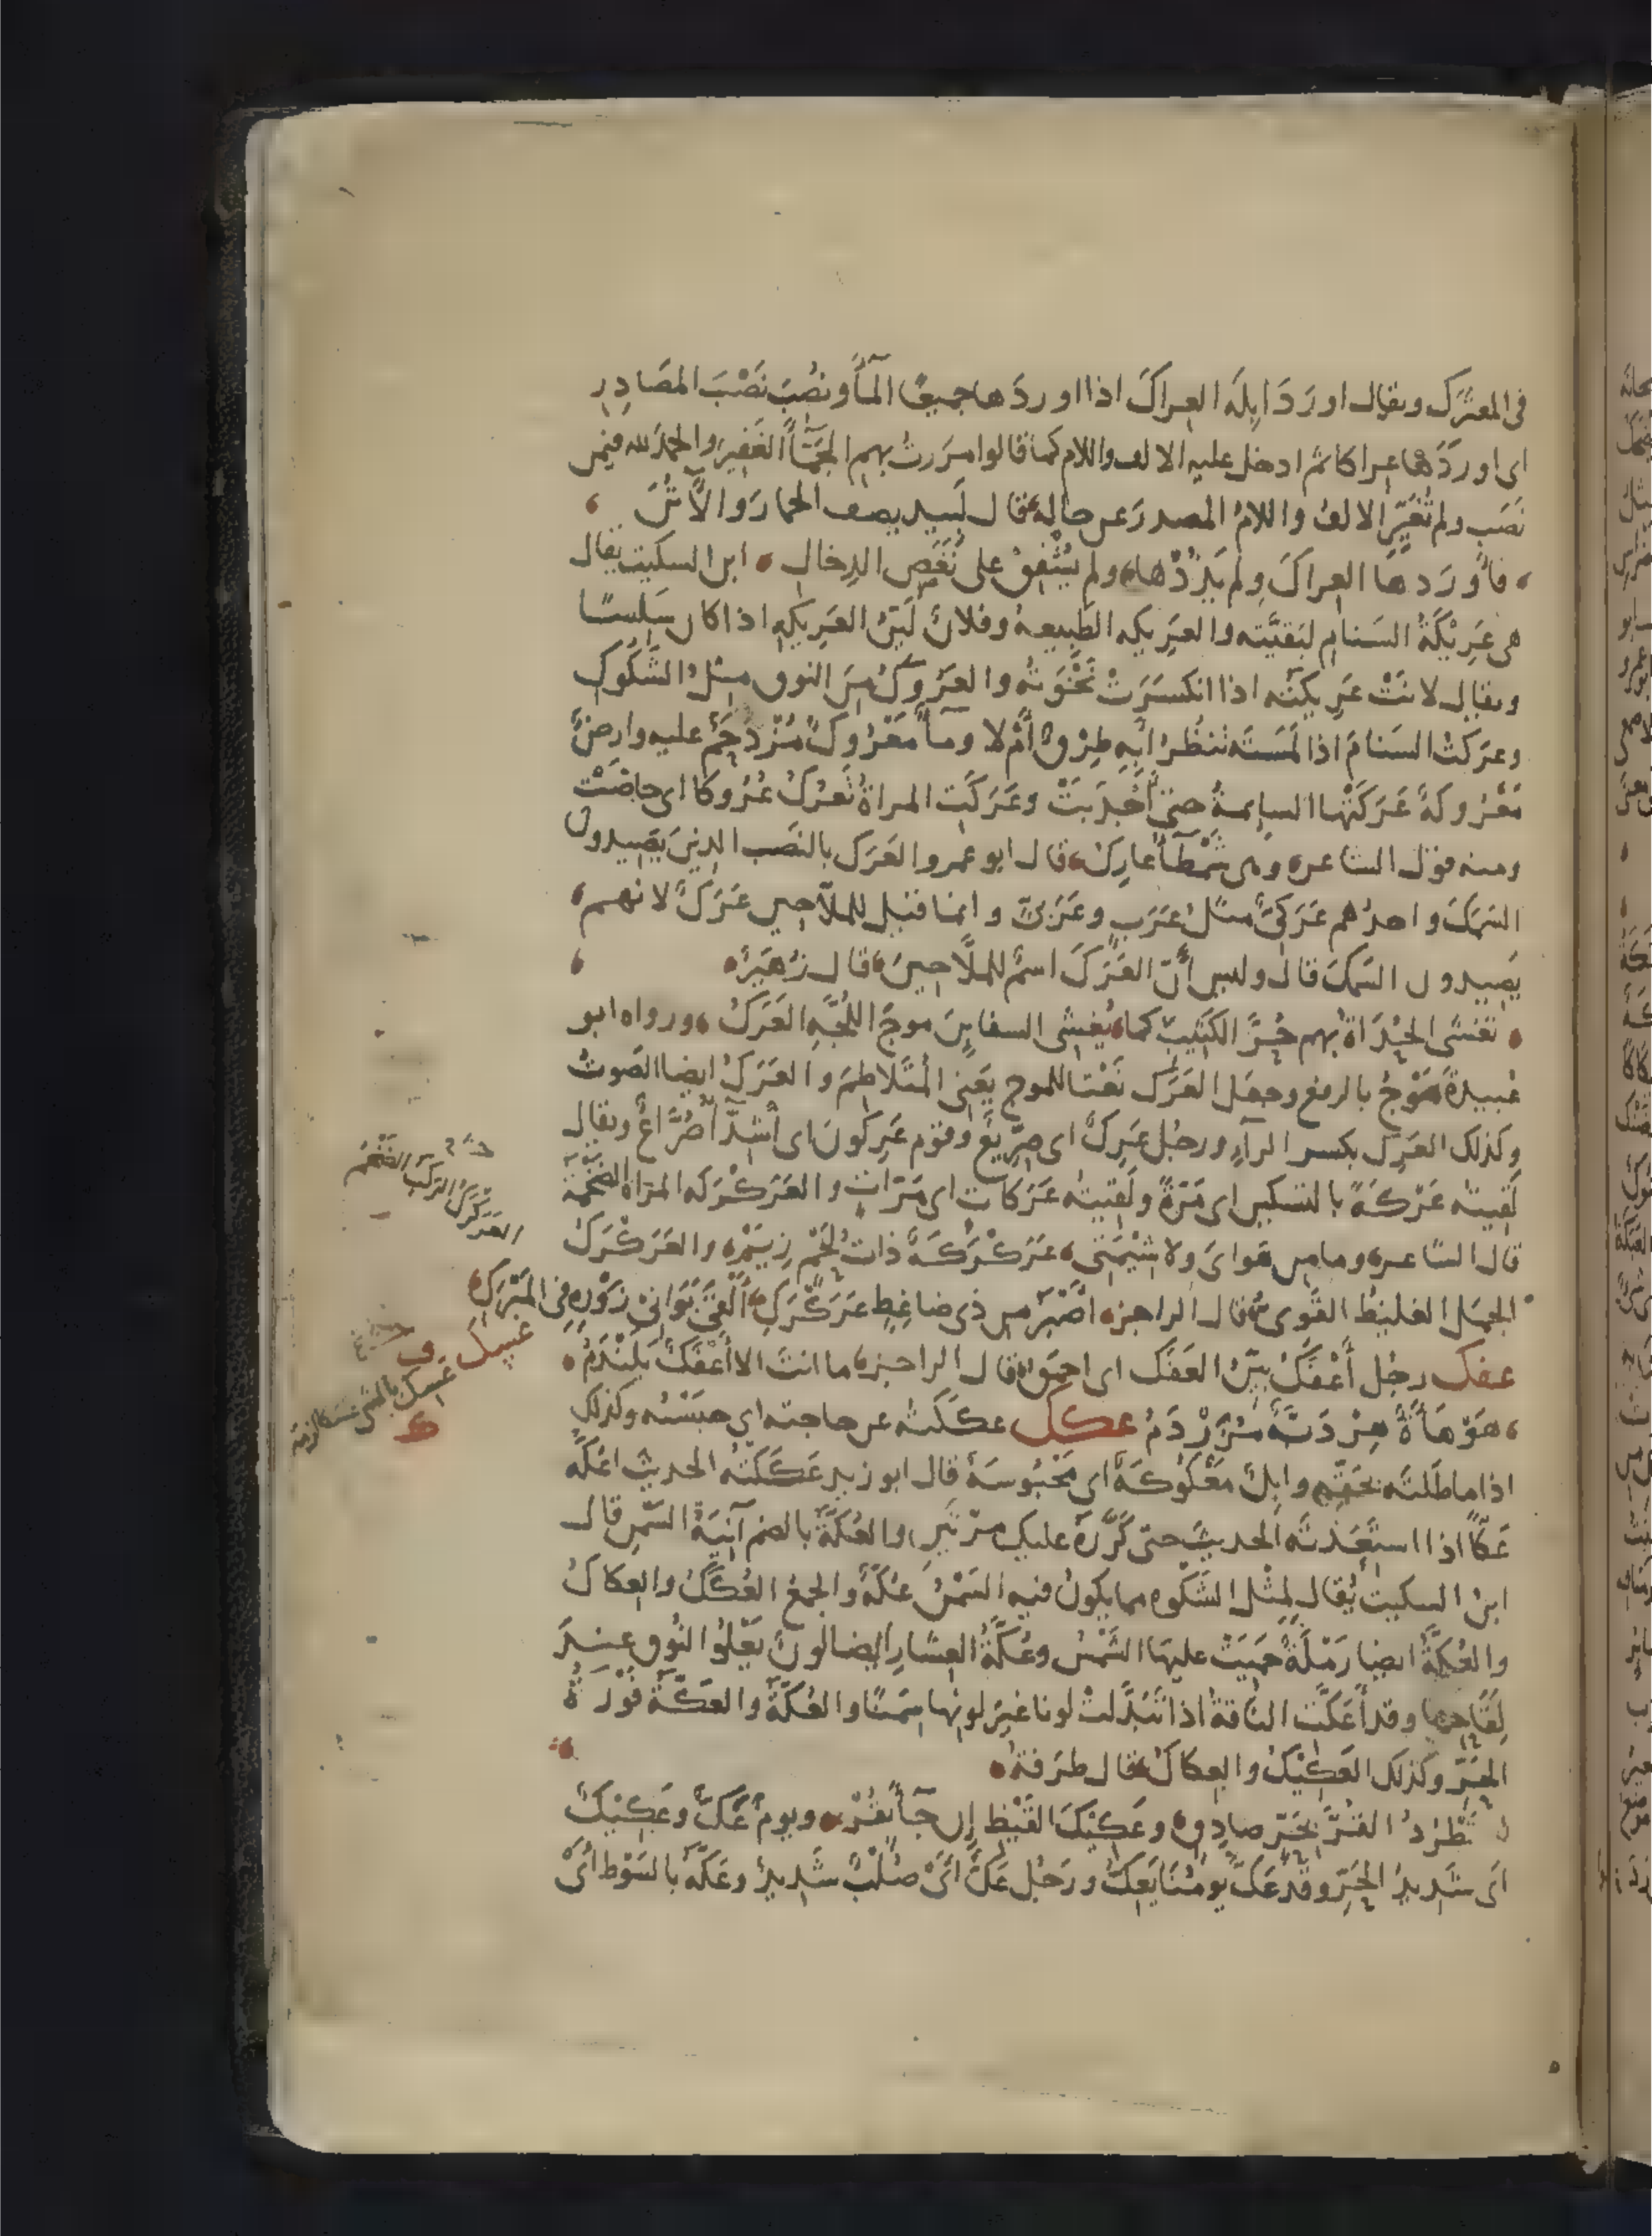 فى المعترك ويقال اورَدَ ابِلَه العِراكَ اذا اوردَها جميعًا المآءَ ونُصِبَ نَصْبَ المصَادِرِ
اى اورَدَها عِراكا ثم ادخل عليه الالف واللام كما قالوا مَرَرتُ بهم الجَمَّآءَ الغَفِيرَ والحمدَ لله فيمن
نَصَب ولم تُغَيِّرِ الالفُ واللامُ المصدرَ عن حالِهِ قال لَبِيد يصف الحمارَ والأُتُنَ
فأورَدها العِراكَ ولم يَذُدْها ولم يُشْفِقْ على نَغَصِ الدِخالِ ابن السكيت يقال
هى عَرِيْكَةُ السَنامِ لبَقيَّتِه والعَرِيكه الطَبِيعة وفلانٌ لَيِّنُ العَرِيكه اذا كان سَلِسًا
ويقال لانَتْ عَرِيكَتُه اذا انكسَرَتْ نَخْوَتُه والعَرُوكُ مِنَ النوق مِثلُ الشَّكُوكِ
وعرَكتُ السَنامَ اذا لَمَسْتَه تنظُرُ أبِه طِرْقٌ أمْ لا ومآءٌ مَعْرُوكٌ مُزْدَحَمٌ عليه وارضٌ
مَعْرُوكةٌ عَرَكَتْها السايمةُ حتى أجْدَبَتْ وعَرَكَتِ المراةُ تَعرُكُ عُرُوكا اى حاضَتْ
ومنه قول الشاعر وهى شَمْطَآءُ عارِكُ قال ابو عمرو العَرَك بالنَصب الذينَ يَصِيدون
السَمَكَ واحدُهم عَرَكِىٌّ مثلُ عَرَبٍ وعَرَبِىٍّ وانما قيل للملاّحين عَرَكٌ لانهم
يَصِيدون السَمَك قال وليس أنّ العَرَكَ اسمٌ للملاَّحِينَ قال زهَيرٌ
تَغْشَى الحُدَاةُ بهم حُرَّ الكَثِيبِ كما يُغشِى السفاينَ موجَ اللُجَّةِ العَرَكُ ورواه ابو
عُبيدةَ مَوْجُ بالرفع وجعل العَرَك نَعْتا للموج يَعنى المُتَلاطِمَ والعَرَكُ ايضا الصَوتُ
وكذلك العَرِك بكسر الرآءِ ورجُل عَرِكٌ اى صِرِّيعٌ وقوم عَرِكونَ اى أشِدّآءُ صُرَّاعٌ ويقال
لَقِيته عَرْكَةً بالتسكين اى مَرّةً ولَقِيته عَرَكات اى مَرّاتٍ والعَرَكْرَكه المَراةُ الضَخْمَة
قال الشاعر وما مِن هَواىَ ولا شِيْمَتِى عَرَكْرَكَةٌ ذاتُ لَحْمٍ زِيَمْ والعَرَكْرَكُ
الجمَل الغليظُ القَوِى قال الراجز اصْبَرُ مِن ذى ضاغِطٍ عَرَكْرَكِ أَلْقَى بَوَانِىْ زَوْرِه فى المَبْرَكِ
عفك رجُل أعْفَكُ بيّنُ العَفَك اى احمقُ قال الراجز ما انتَ الا أعْفَكٌ بَلَنْدَمُ
هَوْهَاءَةٌ هِرْدَبَّةٌ مُزَرْدَمُ عكك عَكَكتُه عن حاجته اى حبَسْتُه وكذلك
اذا ماطَلتَه بحَقِّه وابِلٌ مَعْكُوكَةٌ اى مَحْبُوسَةٌ قال ابو زيد عَكَكْتُه الحديثَ اعُكُّه
عَكًّا اذا استَعَدْتَه الحديثَ حتى كَرَّرَهُ عليك مرّتَين والعُكَّة بالضم آنِيَةُ السَمْنِ قال
ابنُ السكيت يُقال لِمثْل الشَكْوه مما يكونُ فيه السَمْنُ عُكَّةٌ والجمعُ العُكَكُ والعِكاكُ
والعُكّةُ ايضا رَمْلَةٌ حَمِيَتْ عليها الشَمْسُ وعُكّةُ العِشارِ ايضا لونٌ يَعْلوُ النُوق عندَ
لِقَاحِها وقد أعَكَّتِ الناقةُ اذا تَبَدَّلَتْ لونا غيرَ لونِها سِمَنًا والعُكَّةُ والعَكَّةُ فَوْرَةُ
الحَرِّ وكذلك العَكِيْكُ والعِكاكُ قال طَرَفة
تَطْرُدُ القُرَّ بِحَرٍّ صادِقٍ وعَكِيْكَ القَيْظِ إن جآءَ بقُرْ ويومٌ عَكٌّ وعَكِيْكٌ
اى شَدِيدُ الحَرِّ وقَد عَكَّ يومُنا يَعِكُّ ورَجُل عَكٌّ أىْ صُلْبٌ شَدِيدٌ وعَكَّه بالسَوْط أىْ
العركرك الركب الضخم
عسك
ق
عسك بالشى عسكا لزمه
ك